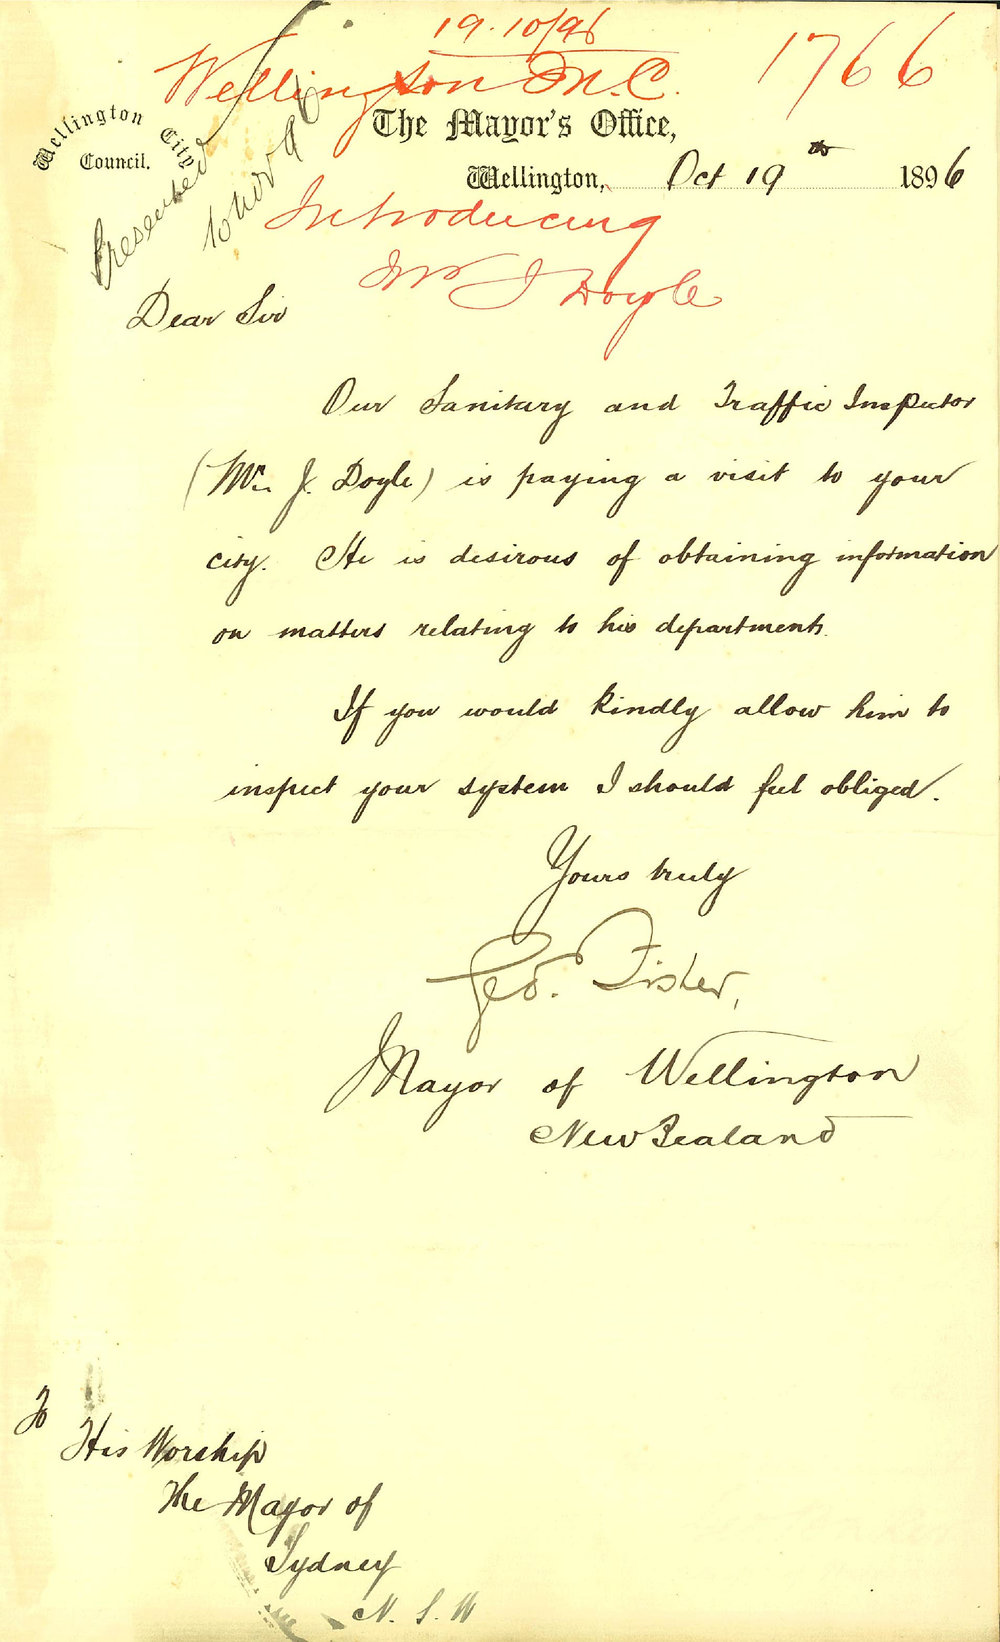 19.10/96
Wellington M.C.
1766
Wellington City
Council.
The Mayor's Office,
Wellington, Oct 19th 1896
Presented
10 Nov 96
Introducing
Mr J Doyle
Dear Sir
Our Sanitary and Traffic Inspector
(Mr. J. Doyle) is paying a visit to your
city. He is desirous of obtaining information
on matters relating to his department.
If you would kindly allow him to
inspect your system I should feel obliged.
Yours truly
Geo. Fisher,
Mayor of Wellington
New Zealand
To
His Worship
The Mayor of
Sydney
N. S. W